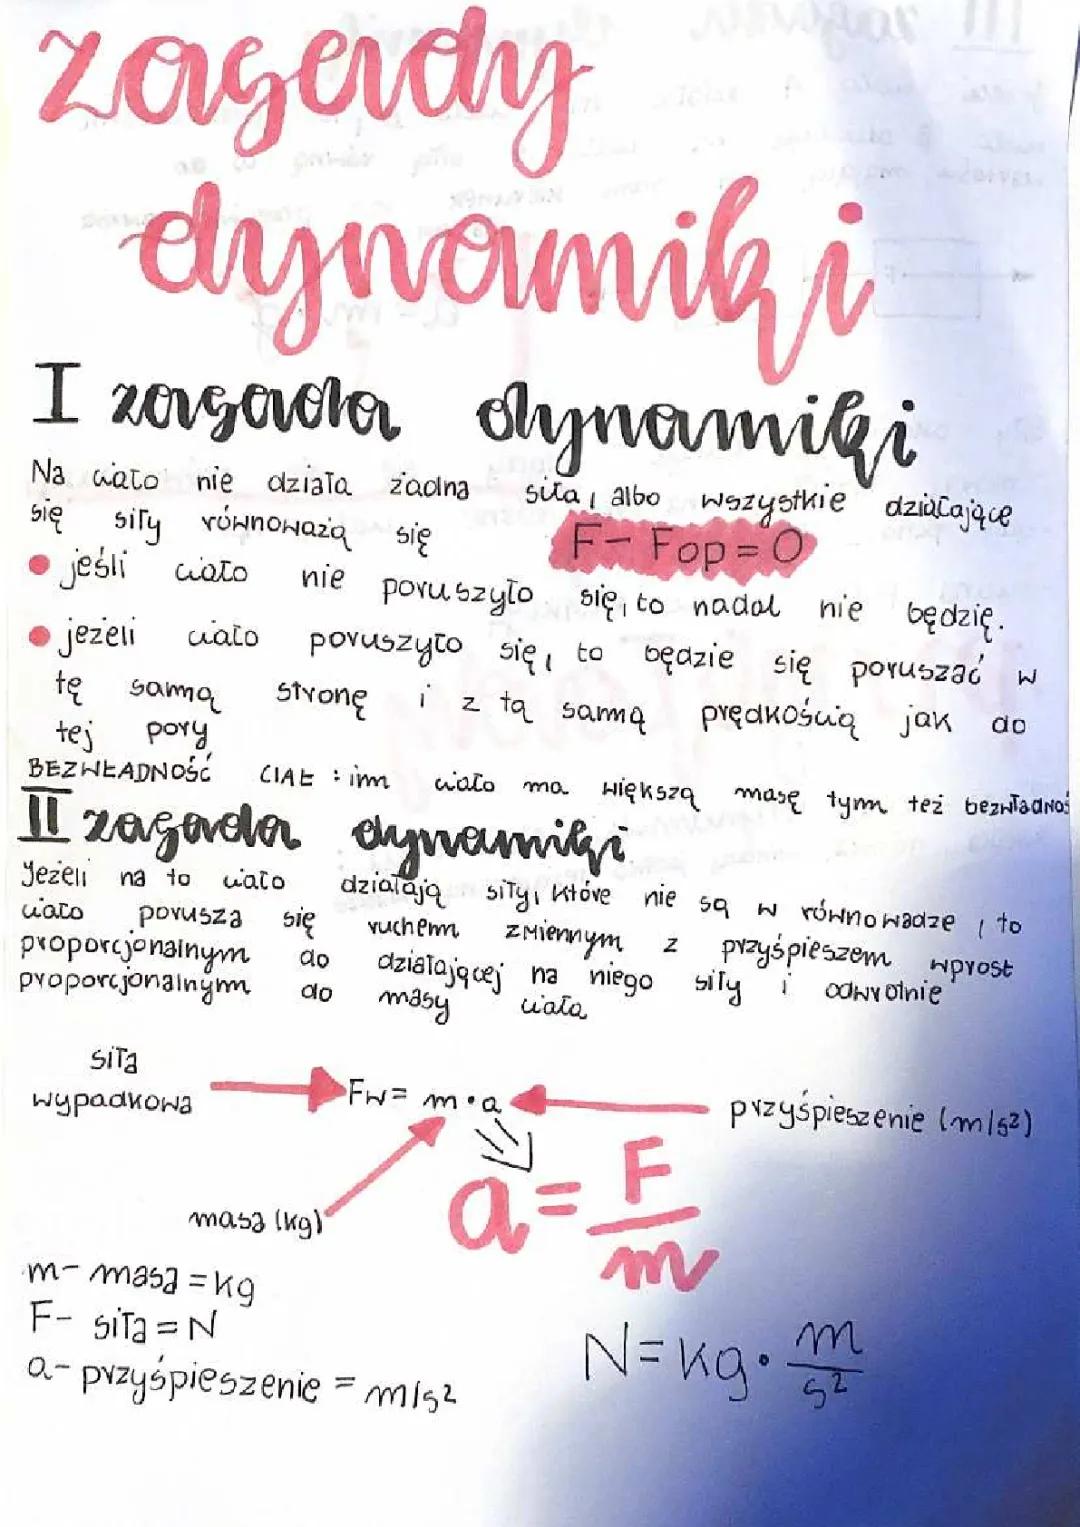 zasady
dynamiki
I zasada dynamiki
Na ciało nie działa żadna siła, albo wszystkie działające
się siły równoważą się
F - Fop = 0
• jeśli ciało nie poruszyło się, to nadal nie będzię.
• jeżeli ciało poruszyło się, to będzie się poruszać w
tę samą stronę i z tą samą prędkością jak do
tej pory
BEZWŁADNOŚĆ CIAŁ : im ciało ma większą masę tym też bezwładnoś
II zasada dynamiki
Jeżeli na to ciało działają siły, które nie są w równowadze, to
ciało porusza się ruchem zmiennym z przyśpieszem wprost
proporcjonalnym do działającej na niego siły i odwrotnie
proporcjonalnym do masy ciała
siła
wypadkowa
Fw = m • a
przyśpieszenie (m/s²)
masa (kg)
a = F/m
m - masa = kg
F - siła = N
a - przyśpieszenie = m/s²
N = kg • m/s²